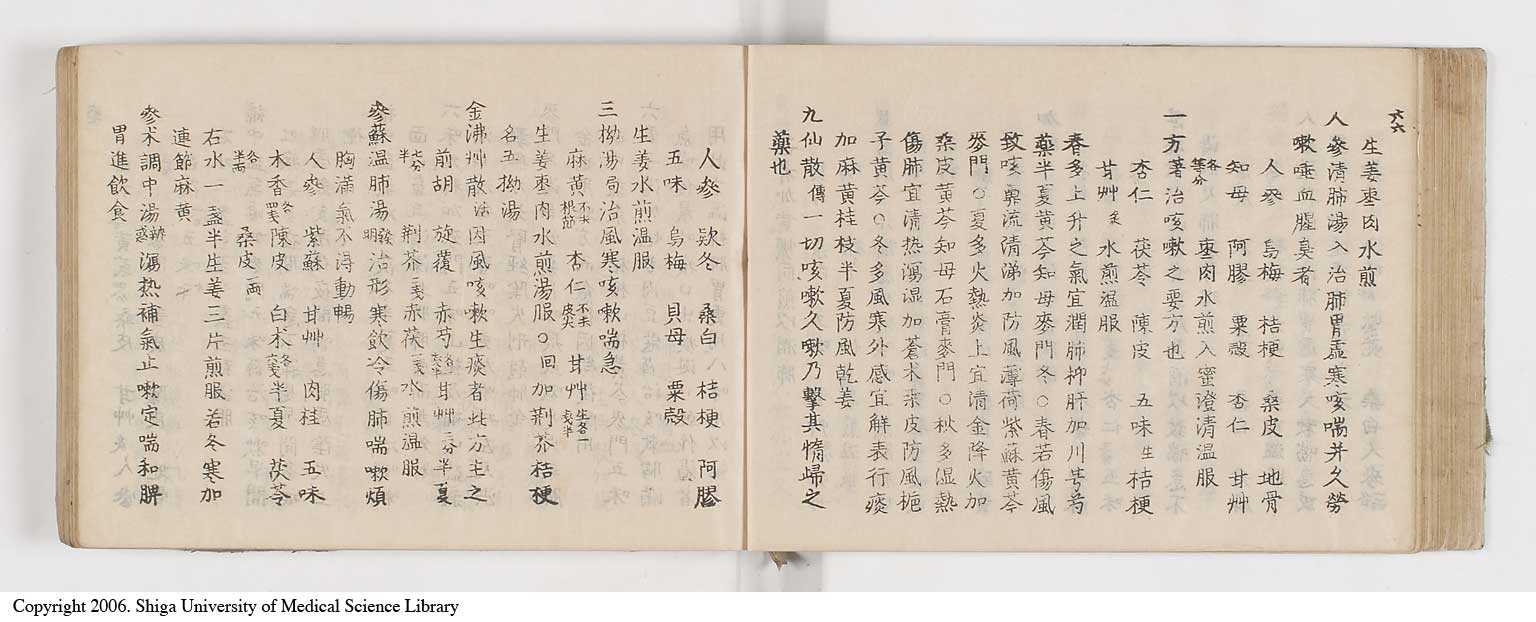 六六
生姜棗肉水煎
人參清肺湯入治肺胃虚寒咳喘并久勞
嗽唾血腥臭者
人參 烏梅 桔梗 桑皮 地骨
知母 阿膠 粟殻 杏仁 甘艸
各等分 棗肉水煎入蜜澄清温服
一方著治咳嗽之要方也
杏仁 茯苓 陳皮 五味 生桔梗
甘艸 炙 水煎温服
春多上升之氣宜潤肺抑肝加川芎芍
藥半夏黄芩知母麥門冬○春若傷風
致咳鼻流清涕加防風薄荷紫蘇黄芩
麥門○夏多火熱炎上宜清金降火加
桒皮黄芩知母石膏麥門○秋多湿熱
傷肺宜清热瀉湿加蒼朮桒皮防風梔
子黄芩○冬多風寒外感宜解表行痰
加麻黄桂枝半夏防風乾姜
九仙散傳一切咳嗽久嗽乃撃其惰歸之
藥也
人參 欵冬 桑白 桔梗 阿膠
五味 烏梅 貝母 粟殻
生姜水煎温服
三拗湯局治風寒咳嗽喘急
麻黄不去根節 杏仁不去皮尖 甘艸生各一戔半
生姜棗肉水煎湯服○回加荆芥桔梗
名五拗湯
金沸艸散 因風咳嗽生痰者此方主之
前胡 旋覆 赤芍各六戔半 甘艸二分半夏
七分半 荆芥二戔 赤茯二戔 水煎温服
參蘇温肺湯發明治形寒飲冷傷肺喘嗽煩
胸滿氣不淂動暢
人參 紫蘇 甘艸 肉桂 五味
木香各四戔陳皮 白朮各六戔半夏 茯苓
各半両 桑皮一両
右水一盞半生姜三片煎服若冬寒加
連節麻黄
參朮調中湯辨惑瀉热補氣止嗽定喘和脾
胃進飲食